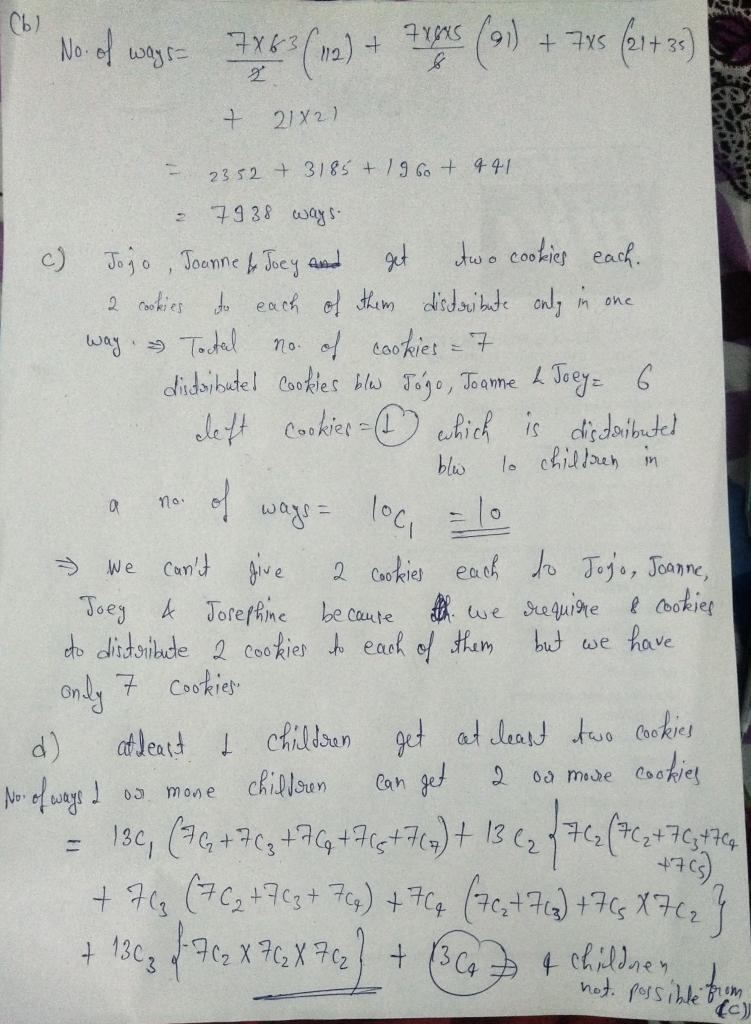 (b)
No. of ways = 7×63/2 (112) + 7×6×5/6 (91) + 7×5 (21+35)
+ 21×21
= 2352 + 3185 + 1960 + 441
= 7938 ways.
c) Jojo, Joanne & Joey get two cookies each.
2 cookies to each of them distribute only in one
way. ⇒ Toctal no. of cookies = 7
distributed cookies b/w Jojo, Joanne & Joey = 6
left cookies = 1 which is distributed
b/w 10 children in
a no. of ways = 10C₁ = 10
⇒ We can't give 2 cookies each to Jojo, Joanne,
Joey & Josephine because we require 8 cookies
to distribute 2 cookies to each of them but we have
only 7 cookies.
d) atleast 1 children get at least two cookies
No. of ways 1 or more children can get 2 or more cookies
= 13C₁ (7C₂+7C₃+7C₄+7C₅+7C₇) + 13C₂ {7C₂(7C₂+7C₃+7C₄
+7C₅)
+ 7C₃ (7C₂+7C₃+7C₄) + 7C₄ (7C₂+7C₃) + 7C₅ × 7C₂}
+ 13C₃ {7C₂ × 7C₂ × 7C₂} + 13C₄ ⇒ 4 children
not possible from
(c))